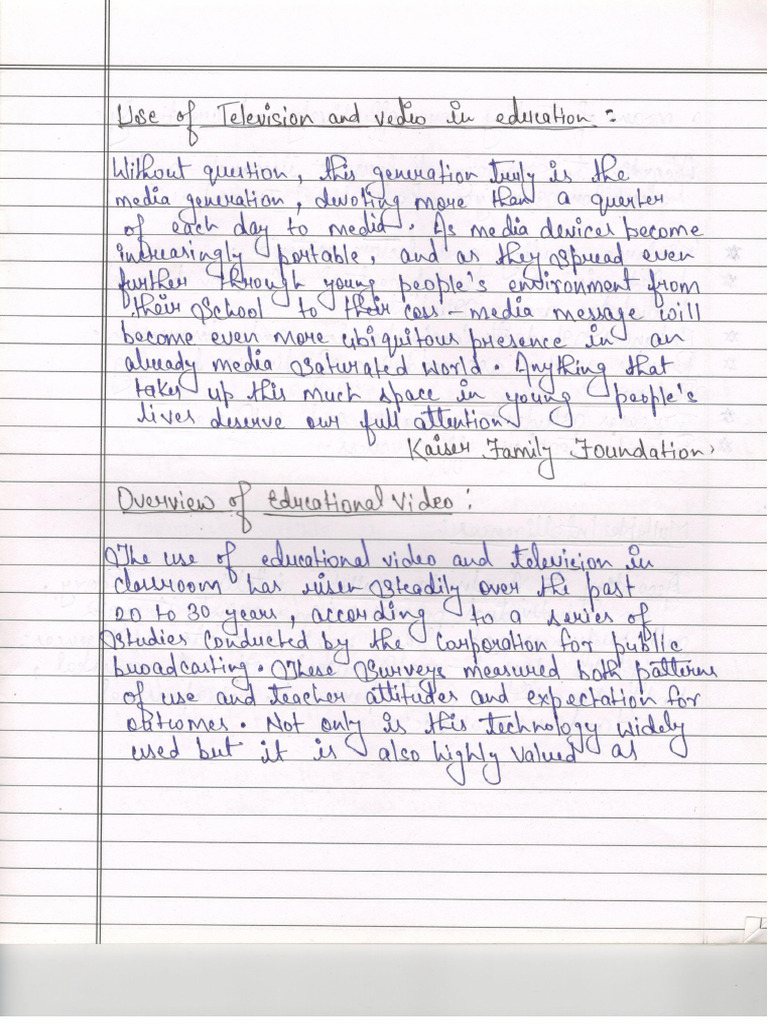 Use of Television and vedio in education :
Without question, this generation truly is the
media generation, devoting more than a quarter
of each day to media. As media devices become
increasingly portable, and as they spread even
further through young people's environment from
their School to their cars - media message will
become even more ubiquitous presence in an
already media saturated world. Anything that
takes up this much space in young people's
lives deserve our full attention
Kaiser Family Foundation.
Overview of Educational Video :
The use of educational video and television in
classroom has risen steadily over the past
20 to 30 years, according to a series of
studies conducted by the Corporation for public
broadcasting. These Surveys measured both patterns
of use and teacher attitudes and expectation for
outcomes. Not only is this technology widely
used but it is also highly valued as